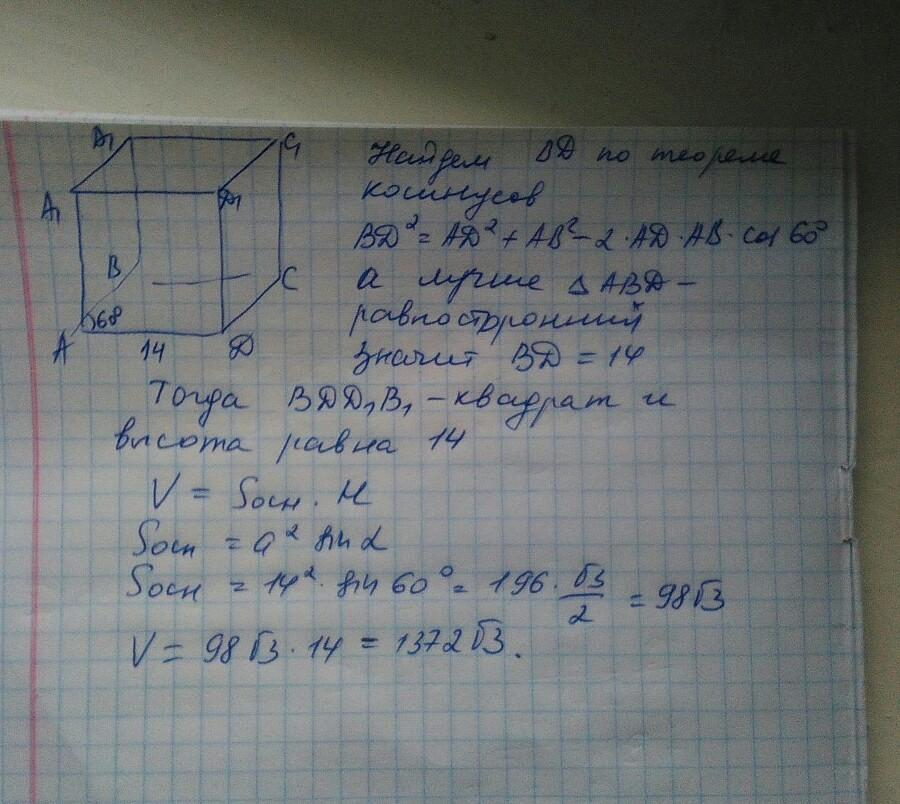 B₁ C₁
A₁ D₁
B C
60°
A 14 D
Найдем BD по теореме
косинусов
BD² = AD² + AB² - 2·AD·AB·cos 60°
а лучше △ABD -
равносторонний
значит BD = 14
Тогда BDD₁B₁ - квадрат и
высота равна 14
V = Sосн · H
Sосн = a² sin α
Sосн = 14² · sin 60° = 196 · √3/2 = 98√3
V = 98√3 · 14 = 1372√3.